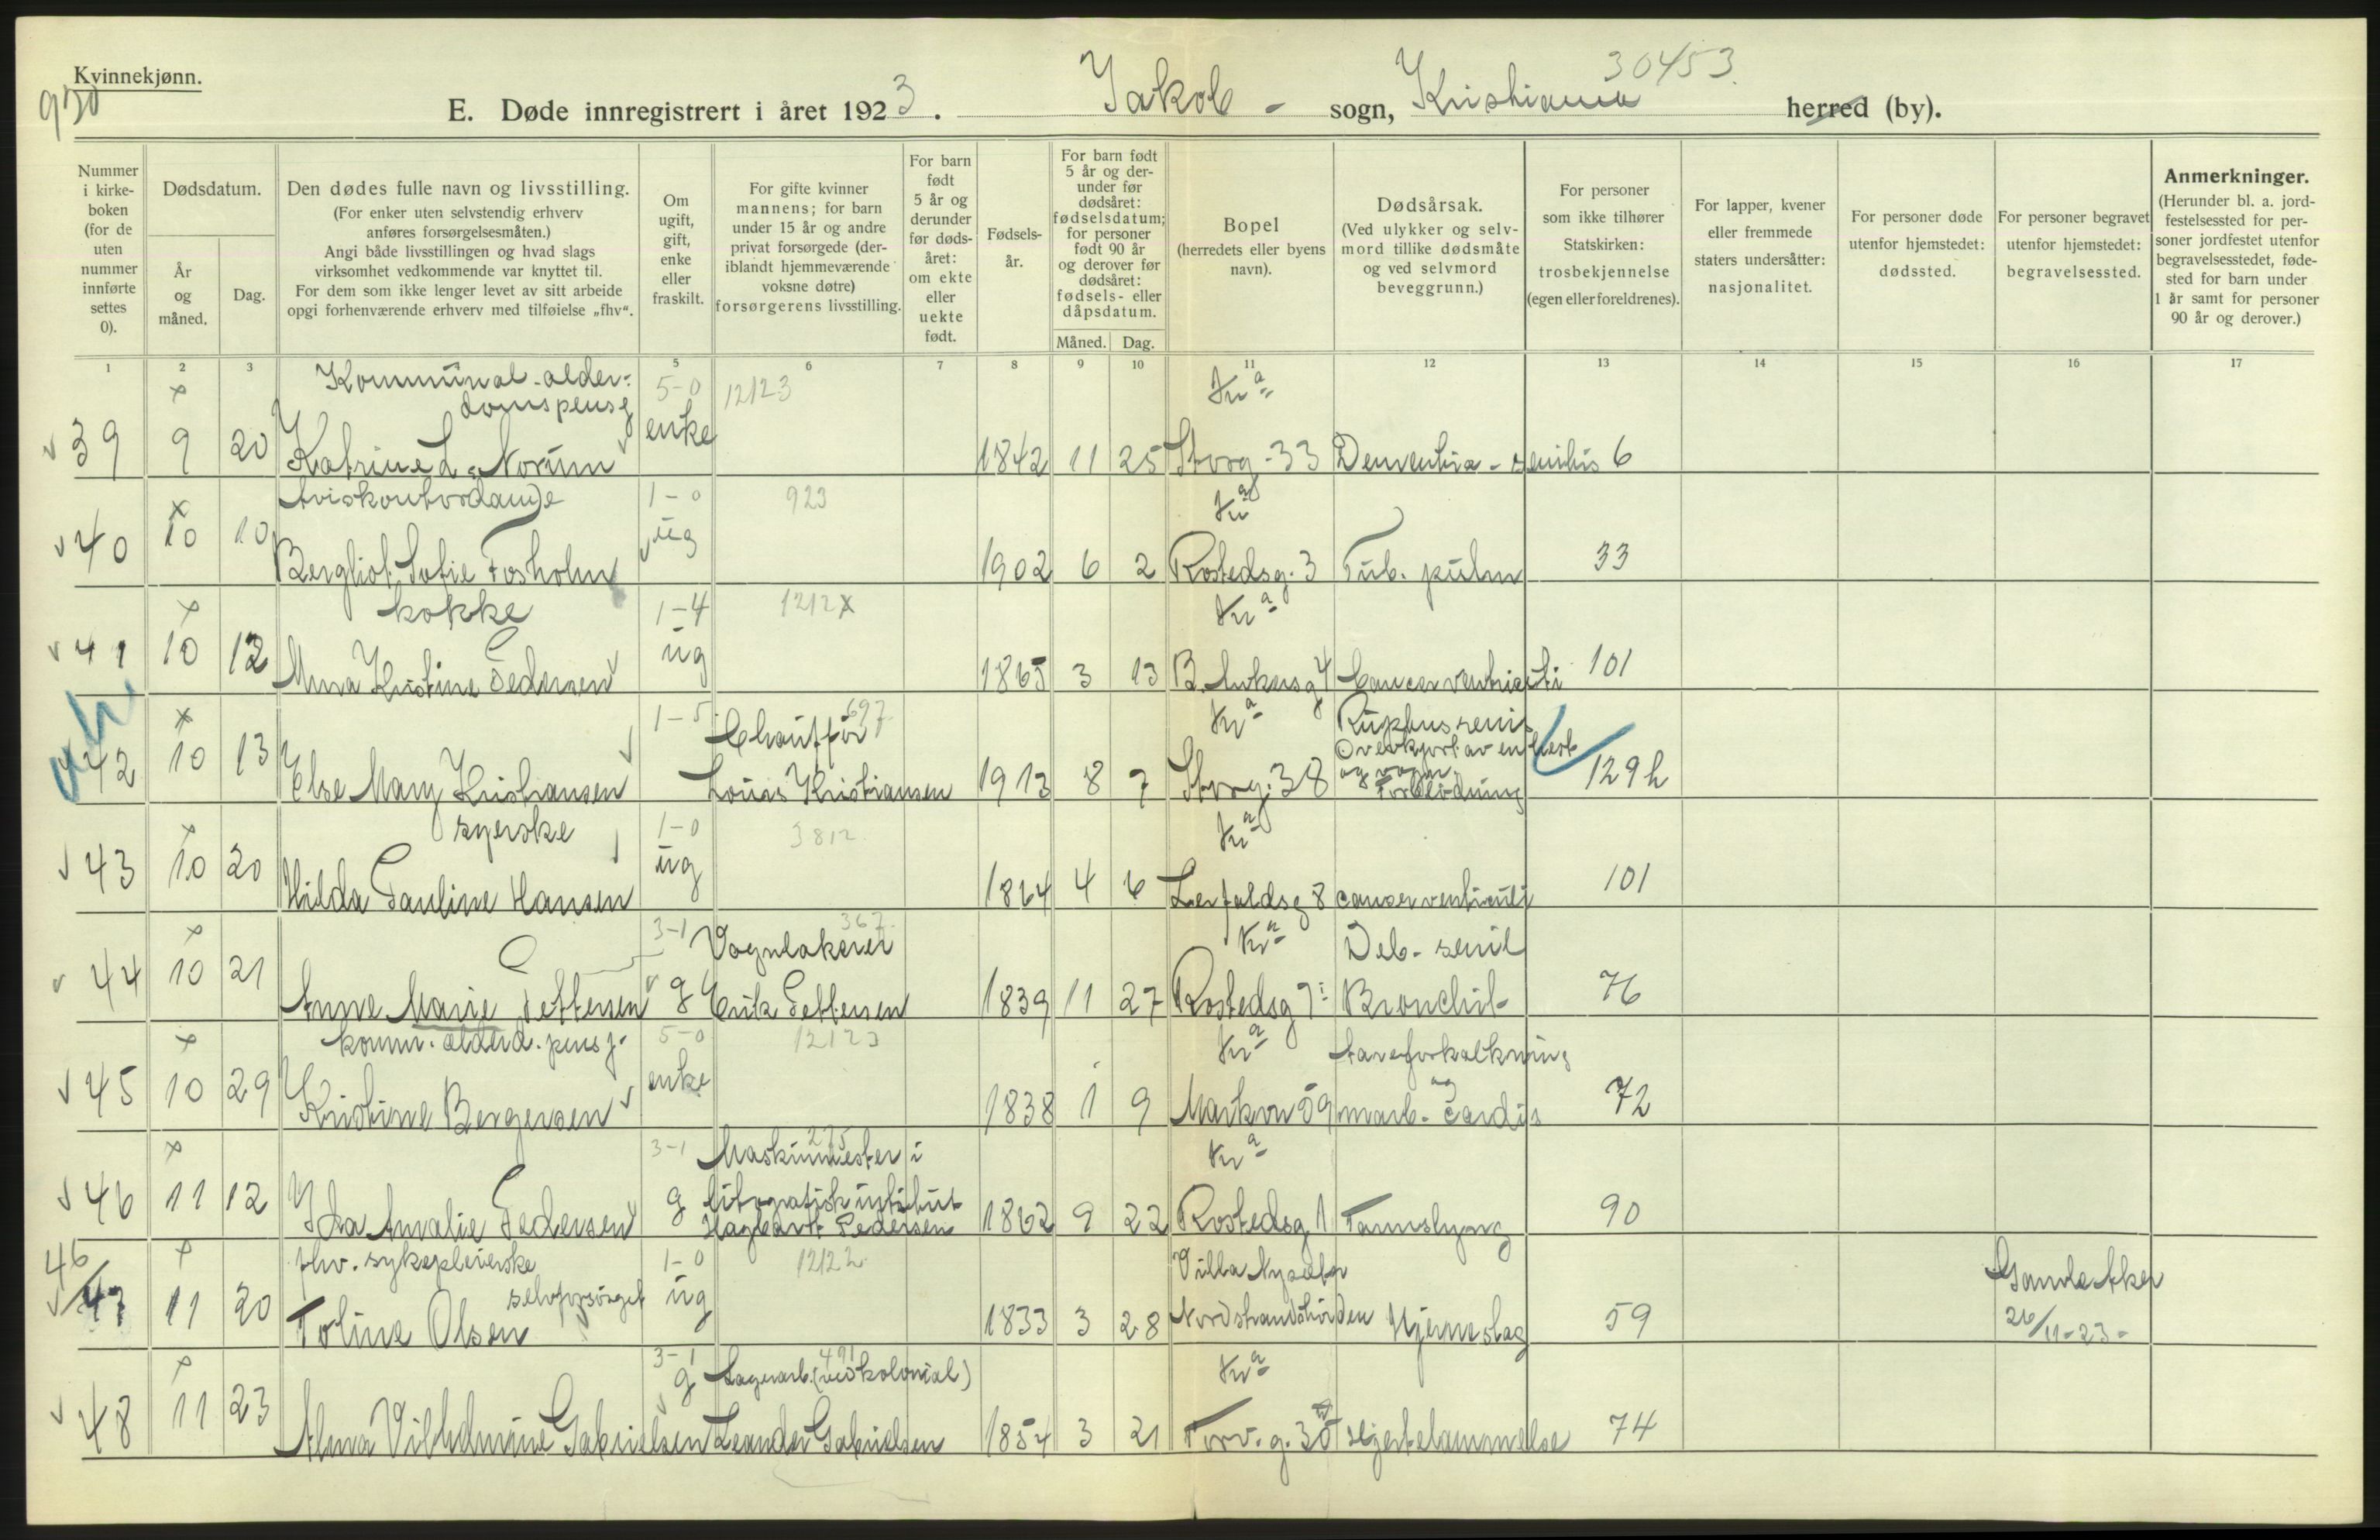 Kvinnekjønn.
930
30453.
E. Døde innregistrert i året 1923. Jakob - sogn, Kristiania herred (by).
Nummer i kirkeboken (for de uten nummer innførte settes 0).
Dødsdatum.
År og måned.
Dag.
Den dødes fulle navn og livsstilling.
(For enker uten selvstendig erhverv anføres forsørgelsesmåten.)
Angi både livsstillingen og hvad slags virksomhet vedkommende var knyttet til.
For dem som ikke lenger levet av sitt arbeide opgi forhenværende erhverv med tilføielse „fhv“.
Om ugift, gift, enke eller fraskilt.
For gifte kvinner mannens; for barn under 15 år og andre privat forsørgede (deriblandt hjemmeværende voksne døtre) forsørgerens livsstilling.
For barn født 5 år og derunder før dødsåret: om ekte eller uekte født.
Fødselsår.
For barn født 5 år og derunder før dødsåret: fødselsdatum; for personer født 90 år og derover før dødsåret: fødsels- eller dåpsdatum.
Måned. Dag.
Bopel
(herredets eller byens navn).
Dødsårsak.
(Ved ulykker og selvmord tillike dødsmåte og ved selvmord beveggrunn.)
For personer som ikke tilhører Statskirken: trosbekjennelse (egen eller foreldrenes).
For lapper, kvener eller fremmede staters undersåtter: nasjonalitet.
For personer døde utenfor hjemstedet: dødssted.
For personer begravet utenfor hjemstedet: begravelsessted.
Anmerkninger.
(Herunder bl. a. jordfestelsessted for personer jordfestet utenfor begravelsesstedet, fødested for barn under 1 år samt for personer 90 år og derover.)
1 2 3 5 6 7 8 9 10 11 12 13 14 15 16 17
Kommunal-alder- 5-0 12123 Kra
domspensj
39 9 20 Katrine L. Norum enke 1842 11 25 Storg. 33 Dementia - senilis 6
Aviskontordame 1-0 923 Kra
40 10 10 Bergliot Sofie Fosholm ug 1902 6 2 Rostedsg. 3 Tub. pulm 33
kokke 1-4 1212 Kra
41 10 12 Kristine Pedersen ug 1865 3 13 Cancer ventriculi 101
1-5 Chauffør 697 Kra
Overkjørt av en hest
42 10 13 Else Mary Kristiansen Louis Kristiansen 1913 8 7 Storg. 38 og vogn. Forblødning 129h
syerske 1-0 3812 Kra
43 10 20 Hilda Pauline Hansen ug 1864 4 6 Lerfaldsg 8 cancer ventriculi 101
3-1 Vognlakerer 367 Kra Deb. senil
44 10 21 Anne Marie Pettersen g Erik Pettersen 1839 11 27 Rostedsg 7 Bronchit 76
komm. alderd. pensj. 5-0 12123 Kra Aareforkalkning
45 10 29 Kristine Bergersen enke 1838 1 9 Markvn 59 og morb. cordis 72
3-1 Maskinmester i 275 Kra
litografisk institut
46 11 12 Ida Amalie Pedersen g Hagbart Pedersen 1862 9 22 Rostedsg 1 90
46 fhv. sykepleierske 1-0 12122 Villa Nysæter
selvforsørget
47 11 20 Toline Olsen ug 1833 3 28 Hjerneslag 59 Gamle Aker
26/11-23-
3-1 g Lagerarb. (ved kolonial) 491 Kra
48 11 23 Alma Vilhelmine Gabrielsen Leander Gabrielsen 1854 3 21 Torv. g. 30 Hjertelammelse 74